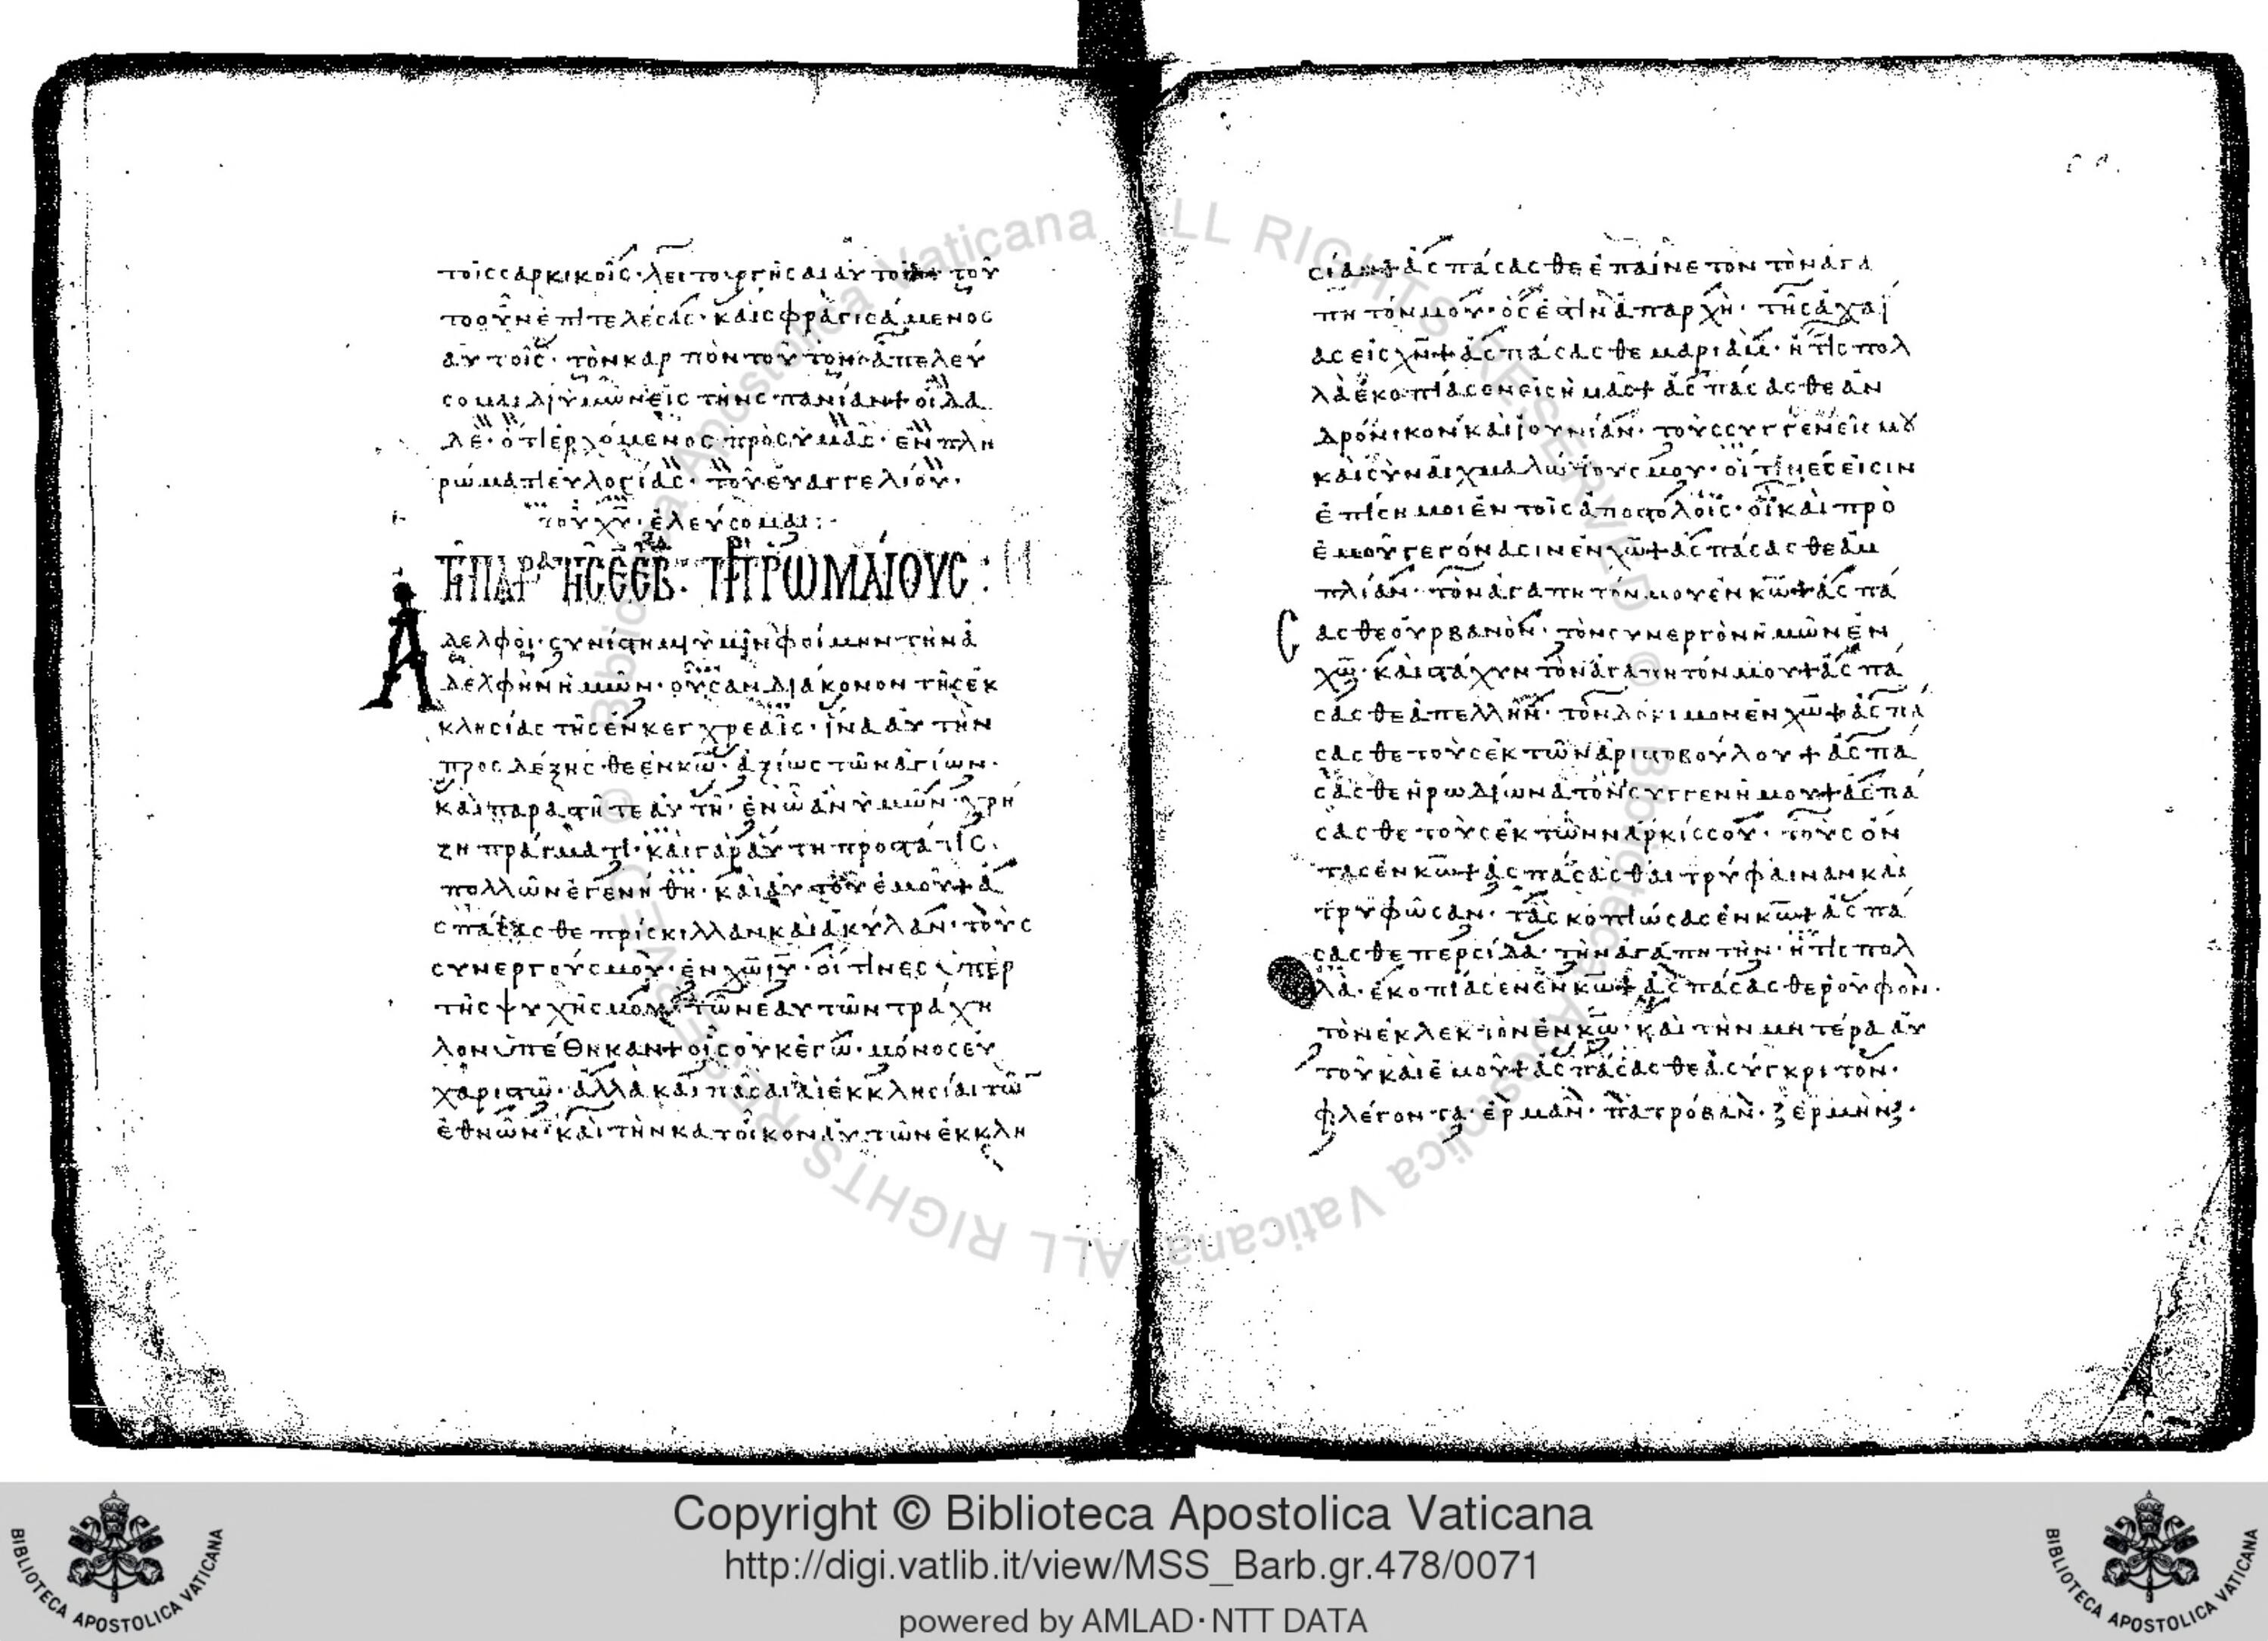 τοῖς σαρκικοῖς· λειτουργῆσαι αὐτοῖς· τοῦ
το οὖν ἐπιτελέσας· καὶ σφραγισάμενος
αὐτοῖς· τὸν καρπὸν τοῦτον· ἀπελεύ
σομαι δι ὑμῶν εἰς τὴν σπανίαν + οἶδα
δὲ· ὅτι ἐρχόμενος πρὸς ὑμᾶς· ἐν πλη
ρώματι εὐλογίας· τοῦ εὐαγγελίου·
τοῦ χυ· ἐλεύσομαι:
ΠΡ ΡΩΜΑΙΟΥΣ:
Ἀδελφοὶ· συνίστημι ὑμῖν φοίμην τὴν ἀ
δελφὴν ἡμῶν· οὖσαν διάκονον τῆς ἐκ
κλησίας τῆς ἐν κεγχρεαῖς· ἵνα αὐτὴν
προσδέξησθε ἐν κω· ἀξίως τῶν ἁγίων·
καὶ παραστῆτε αὐτῆ· ἐν ὧ ἂν ὑμῶν χρή
ζη πράγματι· καὶ γὰρ αὐτη προστάτις·
πολλῶν ἐγενήθη· καὶ αὐτοῦ ἐμοῦ + ἀ
σπάσασθε πρίσκιλλαν καὶ ἀκύλαν· τοὺς
συνεργούς μου· ἐν χω ιυ· οἵτινες ὑπὲρ
τῆς ψυχῆς μου τῶν ἑαυτῶν τράχη
λον ὑπέθηκαν + οἷς οὐκ ἐγὼ· μόνος εὐ
χαριστῶ· ἀλλὰ καὶ πᾶσαι αἱ ἐκκλησίαι τῶ
ἐθνῶν· καὶ τὴν κατοῖκον αὐτῶν ἐκκλη
σίαν + ἀσπάσασθε ἐπαίνετον τὸν ἀγα
πητόν μου· ὅς ἐστιν ἀπαρχὴ· τῆς ἀχαϊ
ας εἰς χν + ἀσπάσασθε μαριάμ· ἥτις πολ
λὰ ἐκοπίασεν εἰς ἡμᾶς + ἀσπάσασθε ἀν
δρόνικον καὶ ἰουνίαν· τοὺς συγγενεῖς μου
καὶ συναιχμαλώτους μου· οἵτινές εἰσιν
ἐπίσημοι ἐν τοῖς ἀποστόλοις· οἳ καὶ πρὸ
ἐμοῦ γεγόνασιν ἐν χω + ἀσπάσασθε ἀμ
πλίαν· τὸν ἀγαπητόν μου ἐν κω + ἀσπά
σασθε οὐρβανὸν· τὸν συνεργὸν ἡμῶν ἐν
χω· καὶ στάχυν τὸν ἀγαπητόν μου + ἀσπά
σασθε ἀπελλῆν· τὸν δόκιμον ἐν χω + ἀσπά
σασθε τοὺς ἐκ τῶν ἀριστοβούλου + ἀσπά
σασθε ἡρωδίωνα τὸν συγγενῆ μου + ἀσπά
σασθε τοὺς ἐκ τῶν ναρκίσσου· τοὺς ὄν
τας ἐν κω + ἀσπάσασθαι τρύφαιναν καὶ
τρυφῶσαν· τὰς κοπιώσας ἐν κω + ἀσπά
σασθε περσίδα· τὴν ἀγάπητὴν· ἥτις πολ
λὰ· ἐκοπίασεν ἐν κω + ἀσπάσασθε ροῦφον·
τὸν ἐκλεκτὸν ἐν κω· καὶ τὴν μητέρα αὐ
τοῦ καὶ ἐμοῦ + ἀσπάσασθε ἀσύγκριτον·
φλέγοντα· ἑρμᾶν· πατρόβαν· ἑρμῆν·
Copyright © Biblioteca Apostolica Vaticana
http://digi.vatlib.it/view/MSS_Barb.gr.478/0071
powered by AMLAD·NTT DATA
BIBLIOTECA APOSTOLICA VATICANA
BIBLIOTECA APOSTOLICA VATICANA